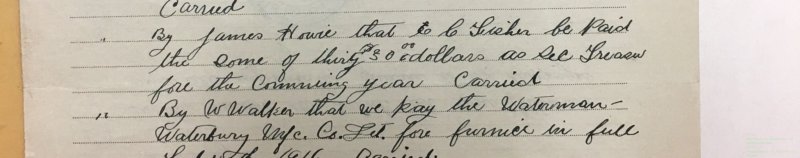 Carried
" By James Howie that E C Fisher be Paid
the some of thirty $30.00 dollars as Sec Treasur
fore the Comming year Carried
" By W Walker that we pay the Waterman-
Waterbury Mfc. Co. Ltd. fore furnice in full